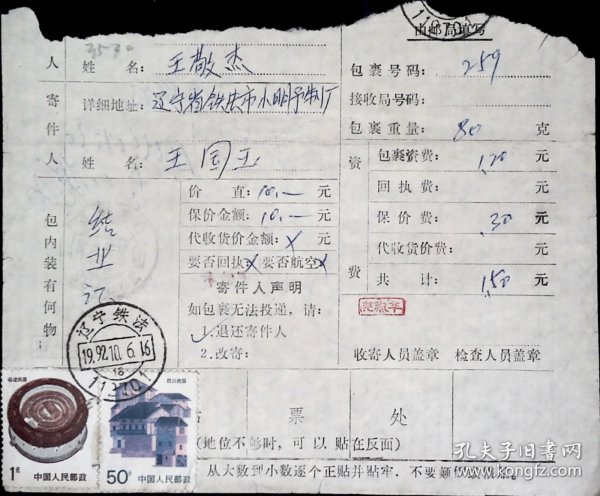 3530
由邮局填写
人 姓 名：王敬杰
包裹号码：259
寄 详细地址：辽宁省铁法市小明予制厂
接收局号码：
件
包裹重量：80 克
人 姓 名：王国玉
资 包裹资费：1.20 元
价 值：10.— 元
回执费： 元
保价金额：10.— 元
保价费：.30 元
代收货价金额：× 元
代收货价费： 元
要否回执：× 要否航空×
费 共 计：1.50 元
包内装有何物：
结业证
寄件人声明
如包裹无法投递，请：
1.退还寄件人
2.改寄：
收寄人员盖章 检查人员盖章
辽宁铁法
1992.10.6.16
18
112701
票 处
（地位不够时，可以贴在反面）
从大数到小数逐个正贴并贴牢，不要
福建民居
1元
中国人民邮政
四川民居
50分
中国人民邮政
孔夫子旧书网